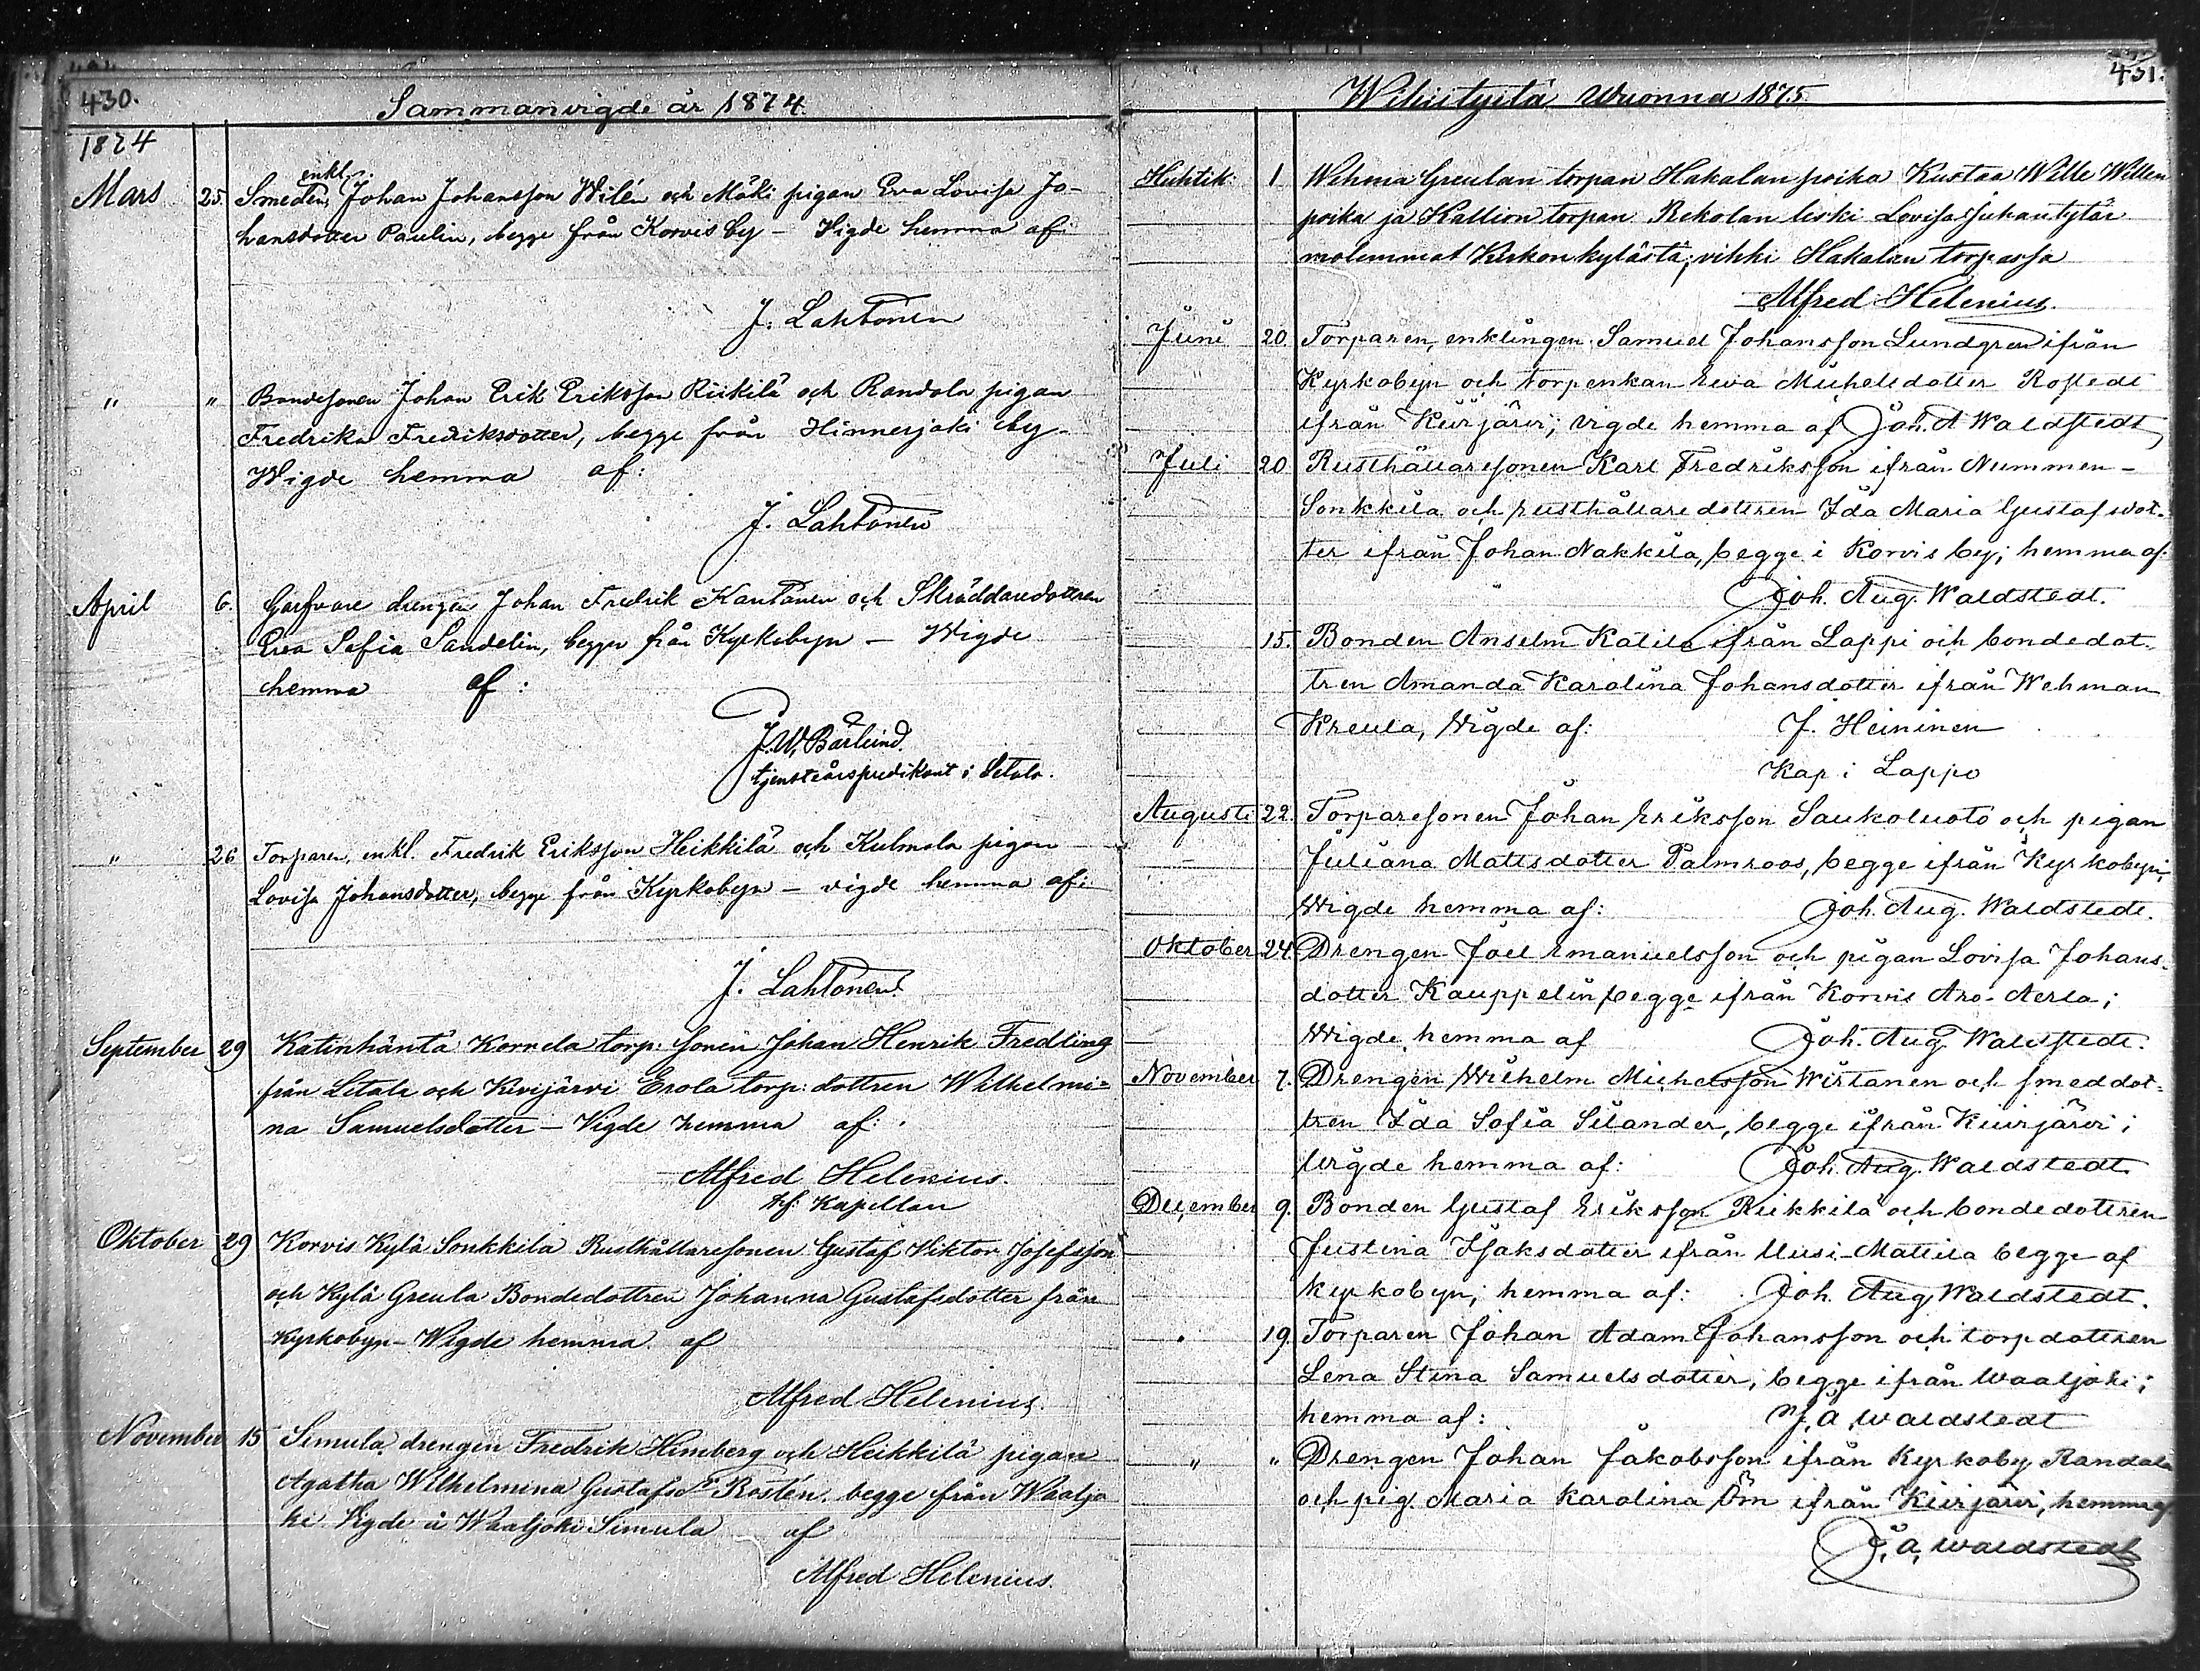 430.
Sammanvigde år 1874.
1874
Mars 25. Smeden, enkl. Johan Johansson Wilén och Mäki pigan Eva Lovisa Jo-
hansdotter Paulin, begge från Korvis by – Vigde hemma af:
J. Lahtonen
" " Bondesonen Johan Erik Eriksson Riikilä och Randola pigan
Fredrika Fredriksdotter, begge från Hinnerjoki by –
Wigde hemma af:
J. Lahtonen
April 6. Garfvare drengen Johan Fredrik Kantonen och Skräddaredottren
Eva Sofia Sandelin, begge från Kyrkobyn – Wigde
hemma af:
J. W. Bärlund.
tjensteårspredikant i Letala.
" 26 Torparen, enkl. Fredrik Eriksson Heikkilä och Kulmala pigan
Lovisa Johansdotter, begge från Kyrkobyn – vigde hemma af:
J. Lahtonen.
September 29 Katinhäntä Kornela torp: sonen Johan Henrik Fredling
från Letala och Kivijärvi Erola torp: dottren Wilhelmi=
na Samuelsdotter – Vigde hemma af:
Alfred Helenius.
tf: Kapellan
Oktober 29 Korvis Kylä Sonkkila Rusthållaresonen Gustaf Viktor Josefsson
och Kylä Greula Bondedottren Johanna Gustafsdotter från
Kyrkobyn – Wigde hemma af
Alfred Helenius.
November 15 Simula drengen Fredrik Himberg och Heikkilä pigan
Agatha Wilhelmina Gustafsdr Rostén, begge från Waaljo
ki Vigde å Waaljoki Simula af
Alfred Helenius.
431.
Wihityitä Wuonna 1875.
Huhtik. 1 Wehma Greulan torpan Hakalan poika Kustaa Wille Willen
poika ja Kallion torpan Rekolan leski Lovisa Juhantytär
molemmat Kirkonkylästä; vihki Hakalan torpassa
Alfred Helenius.
Juni 20. Torparen, enklingen Samuel Johansson Lundgren ifrån
Kyrkobyn och torpenkan Eva Michelsdotter Rostedt
ifrån Kiirjärvi; vigde hemma af Joh. A Waldstedt
Juli 20 Rusthållaresonen Karl Fredriksson ifrån Nummen-
Sonkkila och rusthållaredottren Ida Maria Gustafsdot-
ter ifrån Johan Nakkila, begge i Korvis by; hemma af:
Joh. Aug. Waldstedt.
15. Bonden Anselm Katila ifrån Lappi och bondedot-
tren Amanda Karolina Johansdotter ifrån Wehman
Kreula, Vigde af: J. Heininen
Kap i Lappo
Augusti 22. Torparesonen Johan Eriksson Saukoluoto och pigan
Juliana Mattsdotter Palmroos, begge ifrån Kyrkobyn;
Wigde hemma af: Joh. Aug. Waldstedt.
Oktober 24. Drengen Joel Emanuelsson och pigan Lovisa Johans-
dotter Kauppelin begge ifrån Korvis Aro-Aerla;
Wigde hemma af Joh. Aug. Waldstedt.
November 7. Drengen Wilhelm Michelsson Wirtanen och smeddot-
tren Ida Sofia Silander, begge ifrån Kiirjärvi;
Vigde hemma af: Joh. Aug. Waldstedt
December 9. Bonden Gustaf Eriksson Riikkilä och bondedottren
Justina Isaksdotter ifrån Uusi-Mattila begge af
Kyrkobyn; hemma af: Joh. Aug Waldstedt.
" 19. Torparen Johan Adam Johansson och torpdottren
Lena Stina Samuelsdotter, begge ifrån Waaljoki;
hemma af: J. A. Waldstedt
" " Drengen Johan Jakobsson ifrån Kyrkoby Randala
och pig. Maria Karolina Öm ifrån Kiirjärvi, hemma af
J. A. Waldstedt